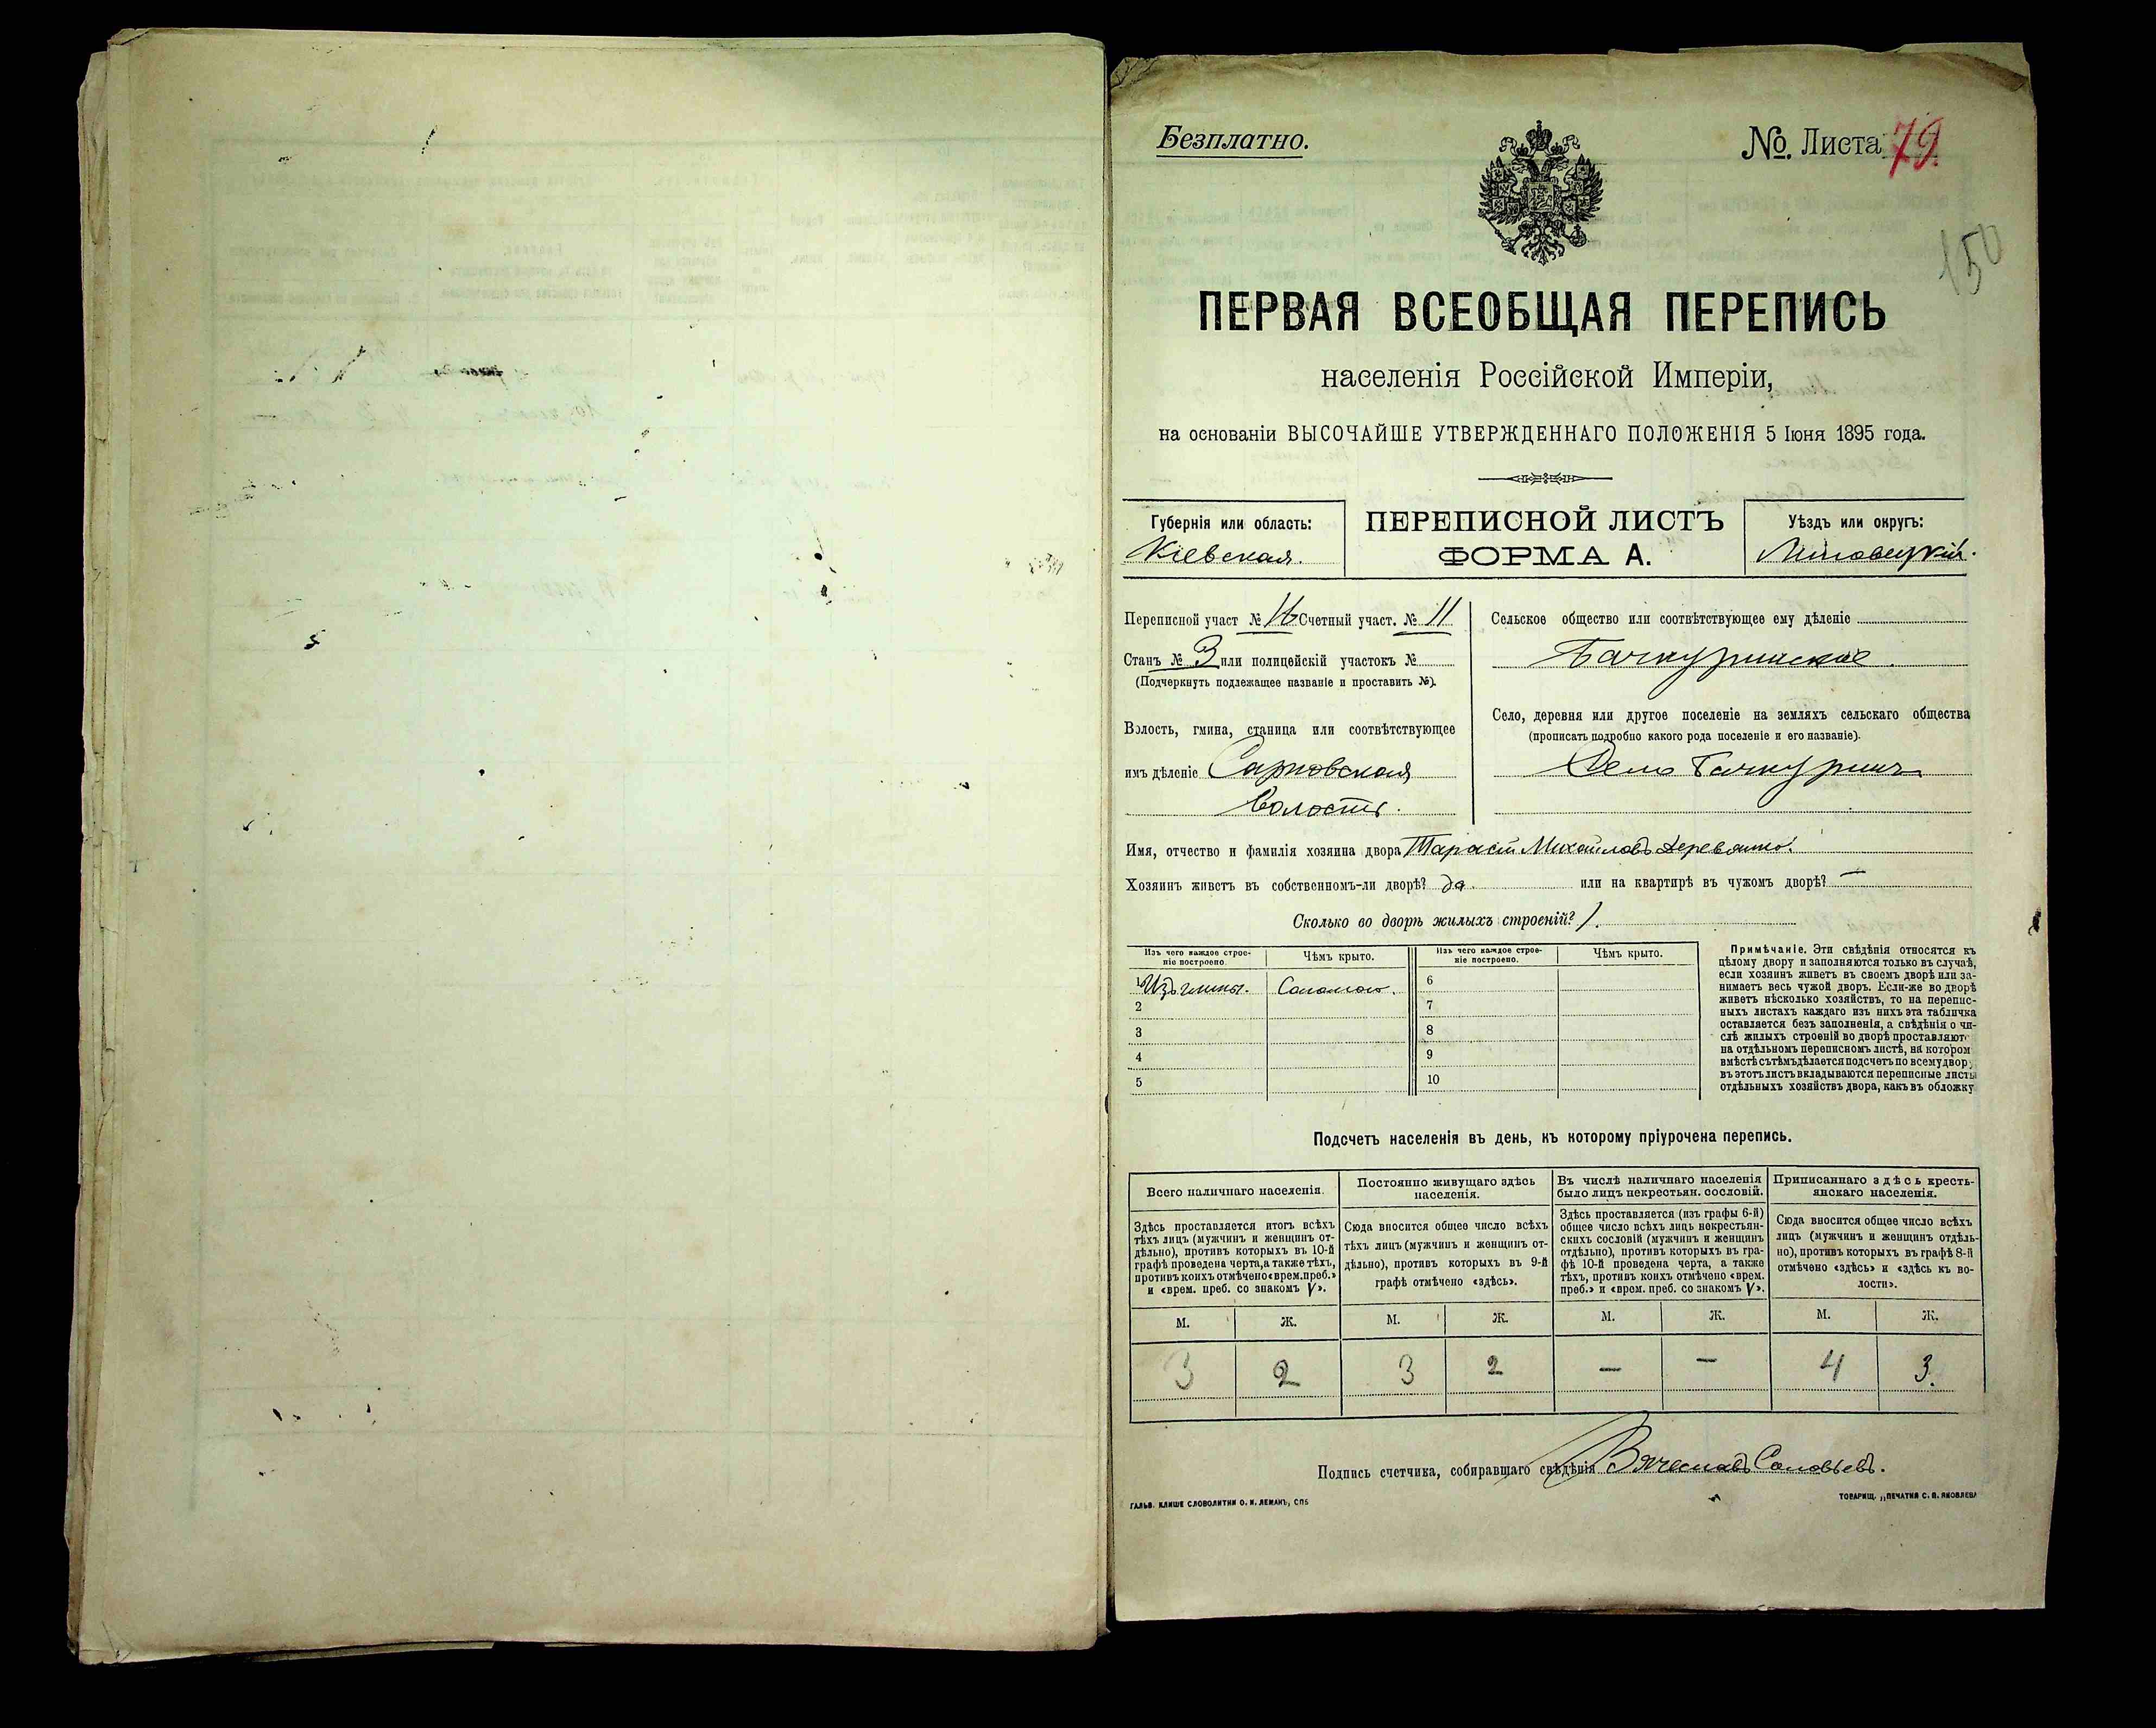 Безплатно.
№ Листа 79.
150
ПЕРВАЯ ВСЕОБЩАЯ ПЕРЕПИСЬ
населенія Россійской Имперіи,
на основаніи ВЫСОЧАЙШЕ УТВЕРЖДЕННАГО ПОЛОЖЕНІЯ 5 Іюня 1895 года.
Губернія или область:
Кіевская.
ПЕРЕПИСНОЙ ЛИСТЪ
ФОРМА А.
Уѣздъ или округъ:
Липовецкій.
Переписной участ № 16 Счетный участ. № 11
Станъ № 3 или полицейскій участокъ №
(Подчеркнуть подлежащее названіе и проставить №).
Волость, гмина, станица или соотвѣтствующее
имъ дѣленіе
Волость.
Сельское общество или соотвѣтствующее ему дѣленіе
Бачкуринское.
Село, деревня или другое поселеніе на земляхъ сельскаго общества
(прописать подробно какого рода поселеніе и его названіе).
Село Бачкуринъ
Имя, отчество и фамилія хозяина двора Тарасій Михайловъ Деревянко.
Хозяинъ живетъ въ собственномъ-ли дворѣ? да. или на квартирѣ въ чужомъ дворѣ? —
Сколько во дворѣ жилыхъ строеній? 1.
Изъ чего каждое строе-
ніе построено.
Чѣмъ крыто.
Изъ чего каждое строе-
ніе построено.
Чѣмъ крыто.
1 Изъ глины. Соломою. 6
2 7
3 8
4 9
5 10
Примѣчаніе. Эти свѣдѣнія относятся къ
цѣлому двору и заполняются только въ случаѣ,
если хозяинъ живетъ въ своемъ дворѣ или за-
нимаетъ весь чужой дворъ. Если-же во дворѣ
живетъ нѣсколько хозяйствъ, то на перепис-
ныхъ листахъ каждаго изъ нихъ эта табличка
оставляется безъ заполненія, а свѣдѣнія о чи-
слѣ жилыхъ строеній во дворѣ проставляют
на отдѣльномъ переписномъ листѣ, на котором
вмѣстѣ съ тѣмъ дѣлается подсчетъ по всему двору
въ этотъ листъ вкладываются переписные листы
отдѣльныхъ хозяйствъ двора, какъ въ обложку
Подсчетъ населенія въ день, къ которому пріурочена перепись.
Всего наличнаго населенія.
Здѣсь проставляется итогъ всѣхъ
тѣхъ лицъ (мужчинъ и женщинъ от-
дѣльно), противъ которыхъ въ 10-й
графѣ проведена черта, а также тѣхъ,
противъ коихъ отмѣчено «врем. преб.»
и «врем. преб. со знакомъ V».
Постоянно живущаго здѣсь
населенія.
Сюда вносится общее число всѣхъ
тѣхъ лицъ (мужчинъ и женщинъ от-
дѣльно), противъ которыхъ въ 9-й
графѣ отмѣчено «здѣсь».
Въ числѣ наличнаго населенія
было лицъ некрестьян. сословій.
Здѣсь проставляется (изъ графы 6-й)
общее число всѣхъ лицъ некрестьян-
скихъ сословій (мужчинъ и женщинъ
отдѣльно), противъ которыхъ въ гра-
фѣ 10-й проведена черта, а также
тѣхъ, противъ коихъ отмѣчено «врем.
преб.» и «врем. преб. со знакомъ V».
Приписаннаго здѣсь кресть-
янскаго населенія.
Сюда вносится общее число всѣхъ
лицъ (мужчинъ и женщинъ отдѣль-
но), противъ которыхъ въ графѣ 8-й
отмѣчено «здѣсь» и «здѣсь къ во-
лости».
М. Ж. М. Ж. М. Ж. М. Ж.
3 2 3 2 — — 4 3.
Подпись счетчика, собиравшаго свѣдѣнія Вячеславъ Соловьевъ.
ГАЛЬВ. КЛИШЕ СЛОВОЛИТНИ О. И. ЛЕМАНЪ, СПБ
ТОВАРИЩ. „ПЕЧАТНЯ С. П. ЯКОВЛЕВА